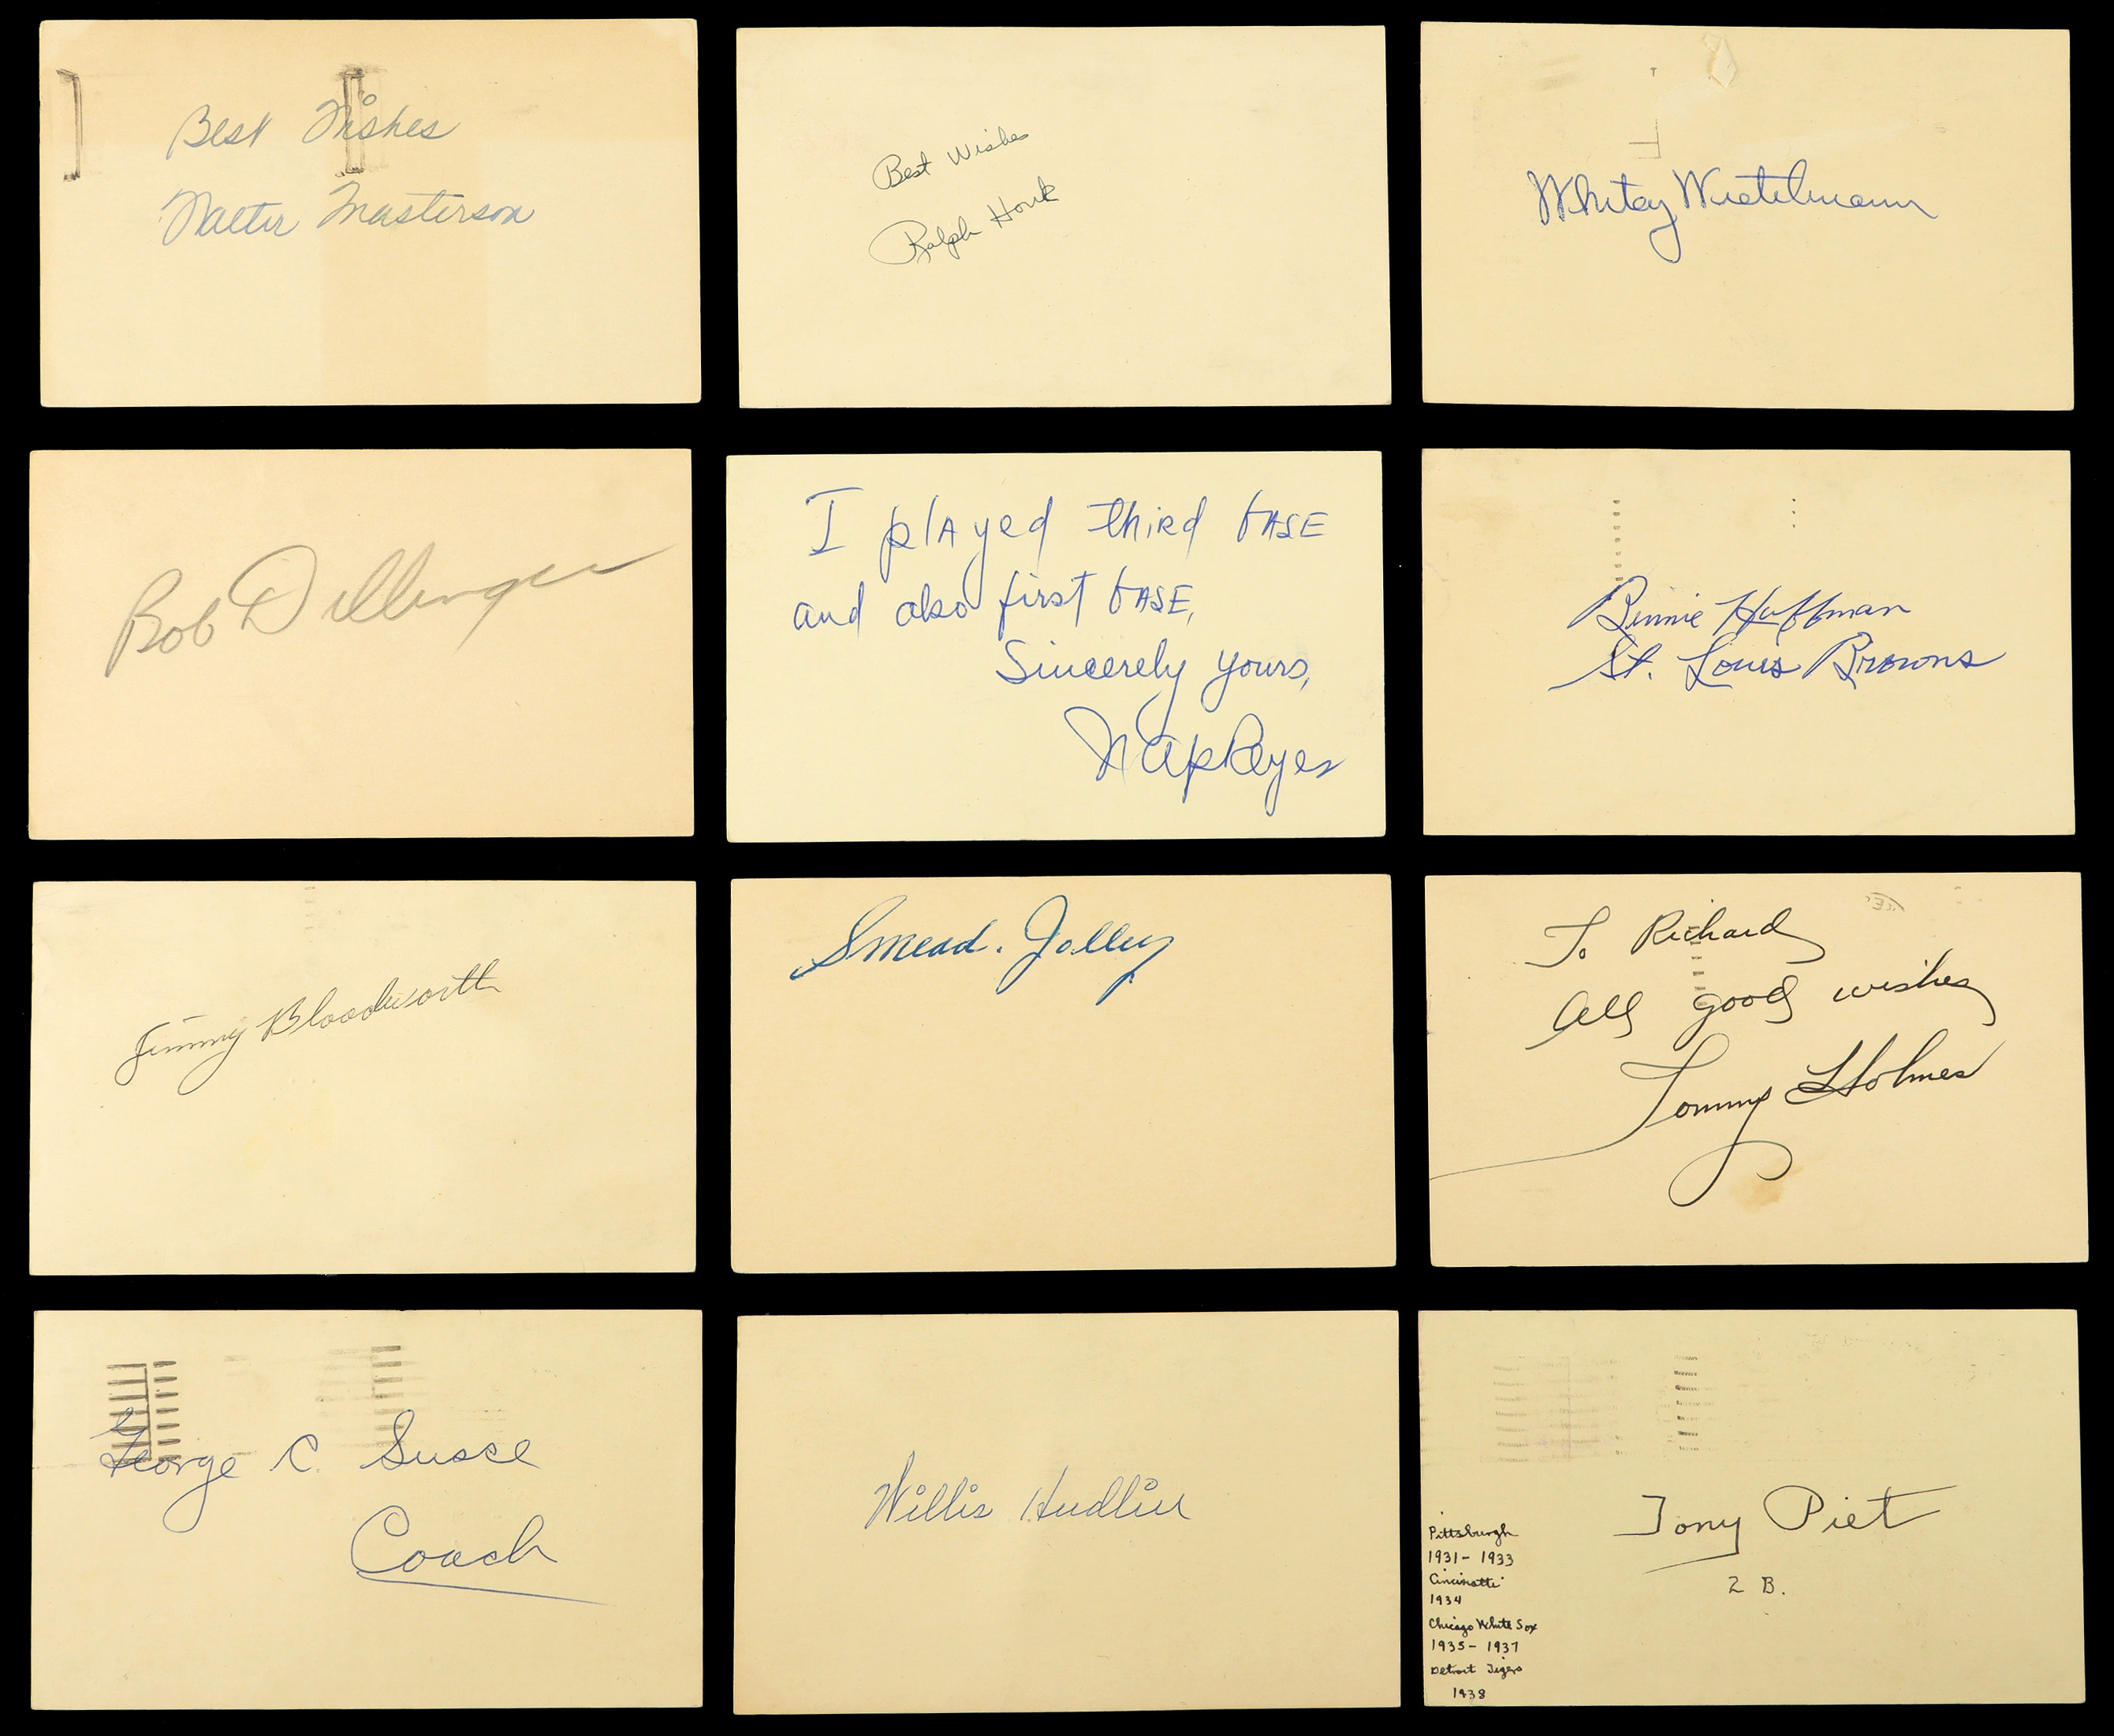 Best Wishes
Walter Masterson
Best Wishes
Ralph Houk
Whitey Wietelmann
Bob Dillinger
I played third base
and also first base,
Sincerely yours,
Nap Reyes
Bennie Huffman
St. Louis Browns
Jimmy Bloodworth
Smead. Jolley
To Richard
All good wishes
Tommy Holmes
George C. Susce
Coach
Willis Hudlin
Tony Piet
2 B.
Pittsburgh
1931 - 1933
Cincinatti
1934
Chicago White Sox
1935 - 1937
Detroit Tigers
1938